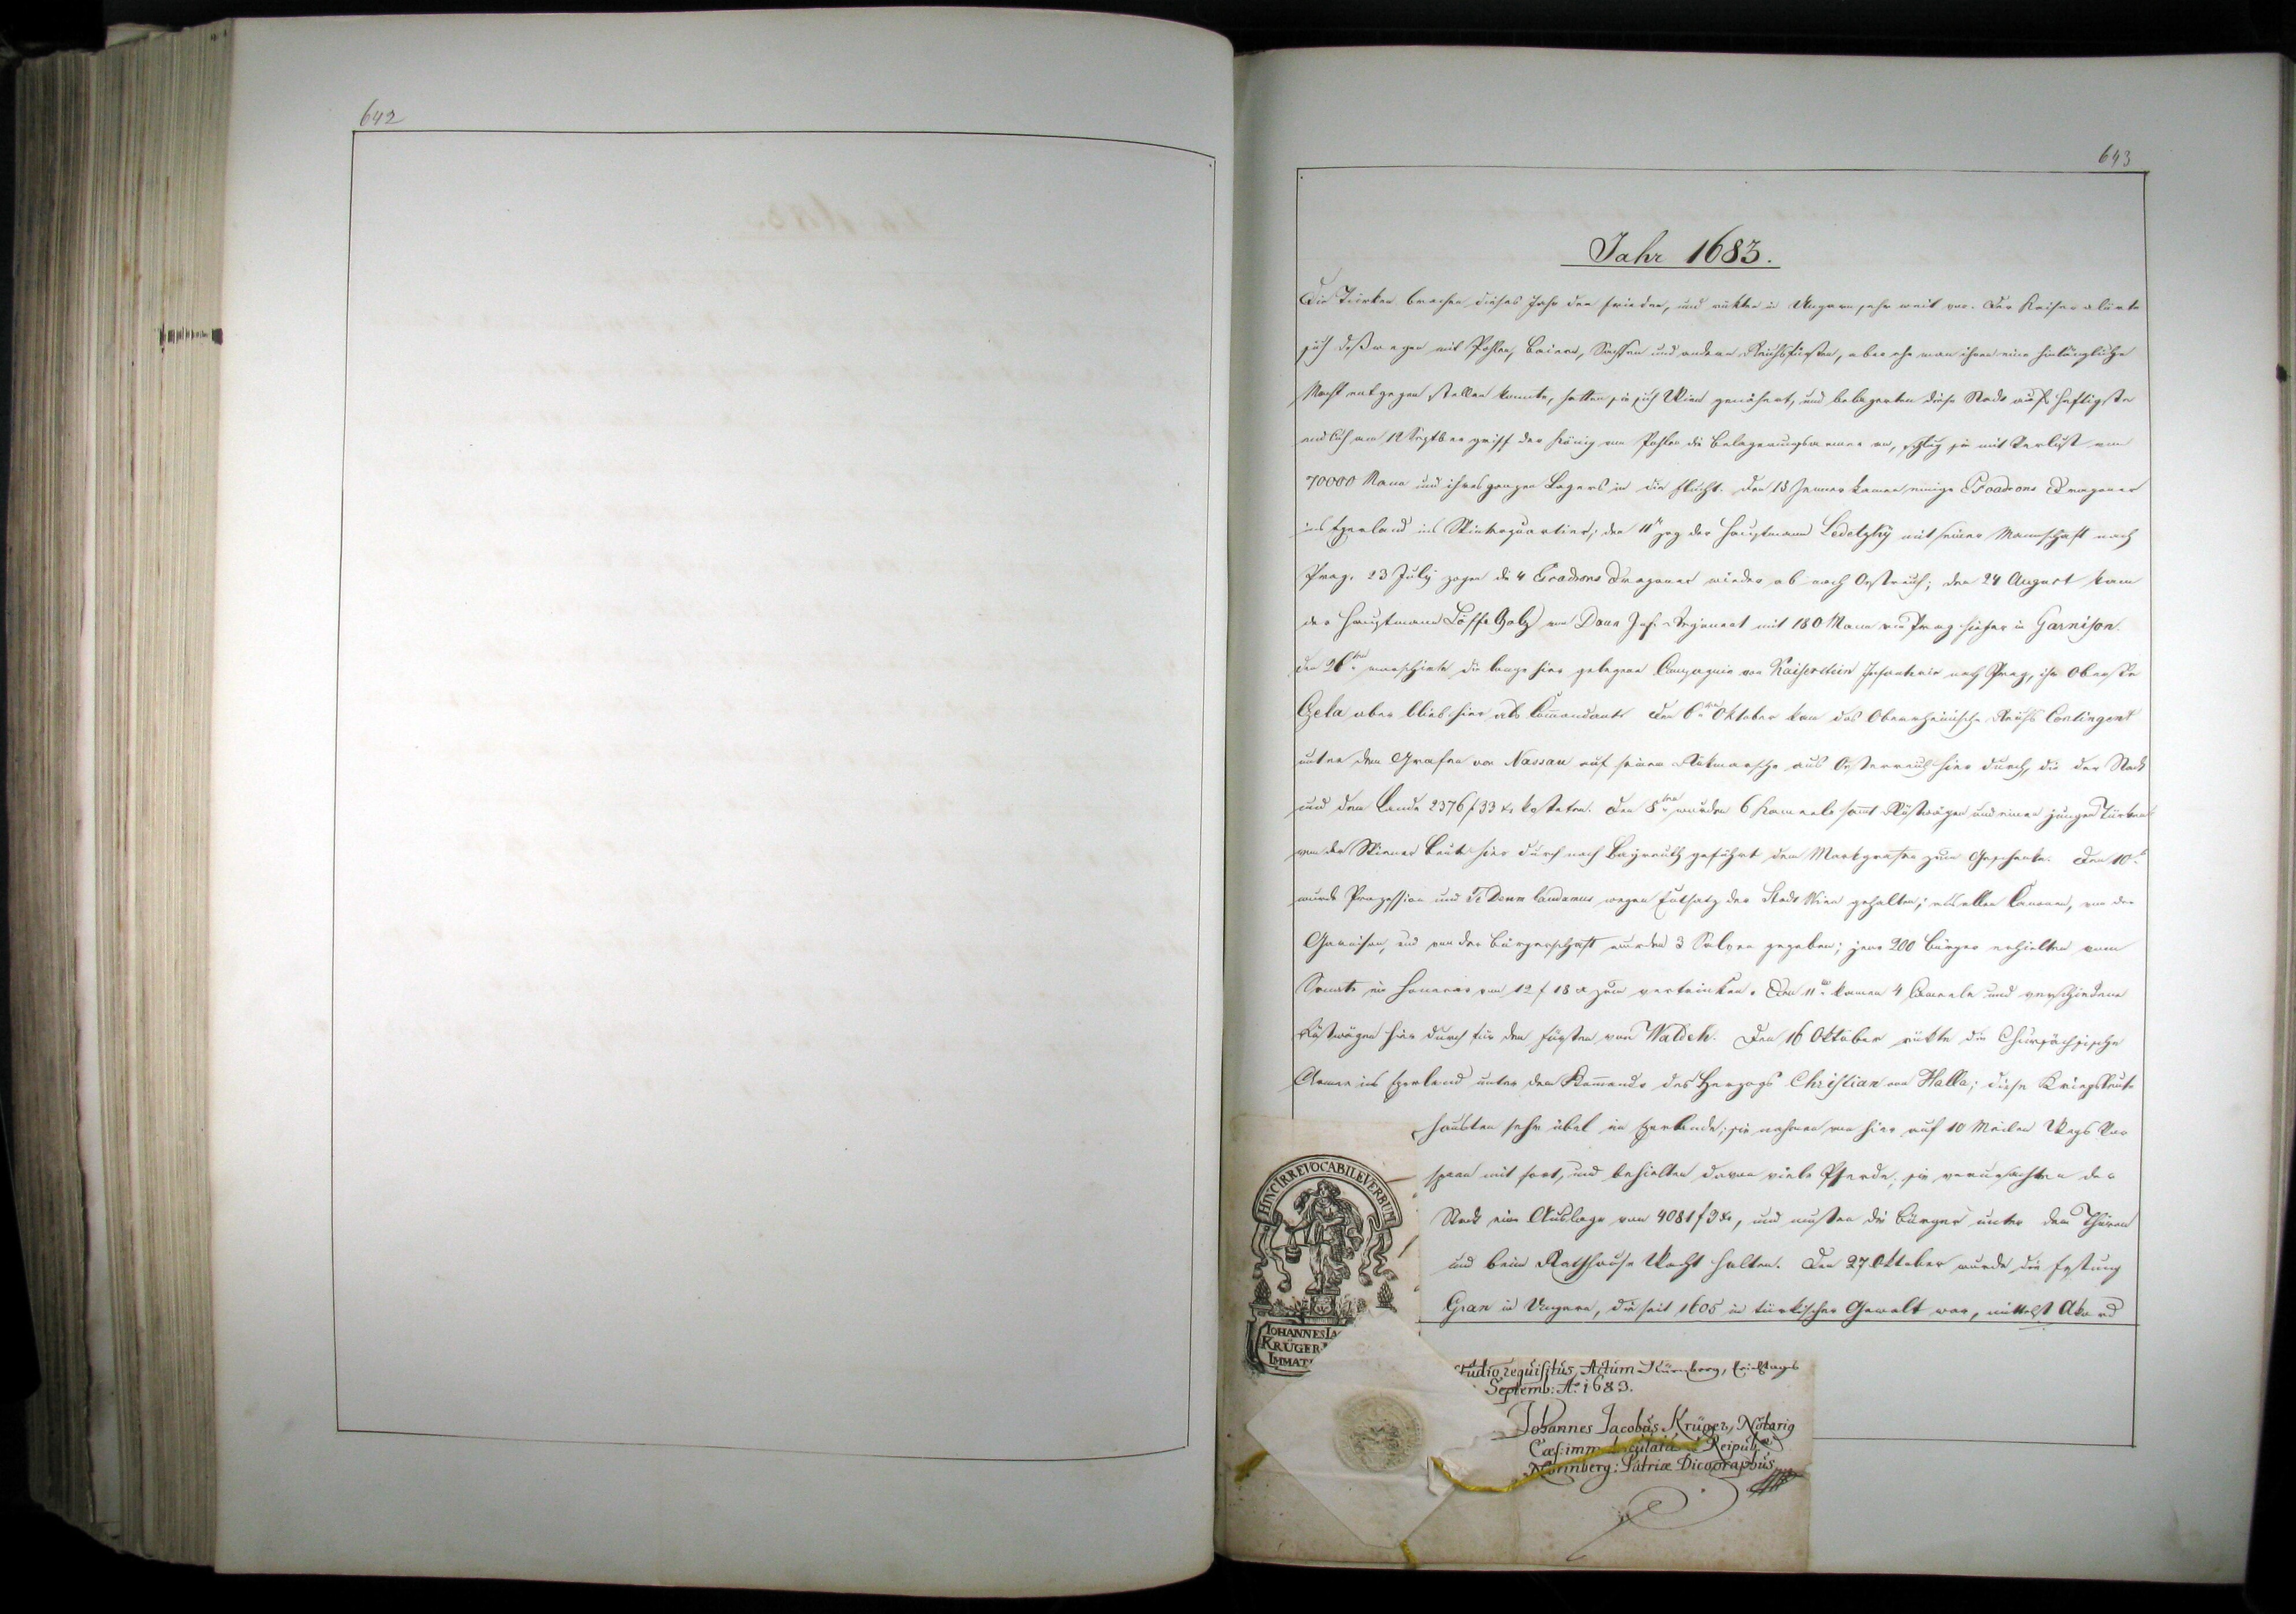 642
643
Jahr 1683.
Die Türken brachen dieses Jahr den Frieden, und rükten in Ungarn sehr weit vor. Der Kaiser aliirte
sich deßwegen mit Pohlen, Baiern, Sachsen und andern Reichsfürsten, aber ehe man ihnen eine hinlängliche
Macht entgegen stellen konnte, hatten sie sich Wien genähert, und belagerten diese Stadt aufs heftigste
endlich am 12 Septber griff der König von Pohlen die Belagerungsarmee an, schlug sie mit Verlust von
70000 Mann und ihres ganzen Lagers in die Flucht. Den 18 Jenner kamen einige Esoadrons Dragoner
ins Egerland ins Winterquartier; den 11t zog der Hauptmann Ledetzky mit seiner Mannschaft nach
Prag. 23 July zogen die 4 Escadrons Dragoner wieder ab nach Oestreich; den 24 August kam
der Hauptmann Löffeholz von Daun Inf. Regiment mit 180 Mann von Prag hieher in Garnison.
den 26ten marschirte die lange hier gelegene Compagnie von Kaiserstein Infanterie nach Prag, ihr Oberste
Gela aber blieb hier als Komandant. Den 6ten Oktober kam das Oberrheinische Reichs Contingent
unter dem Grafen von Nassau auf seinem Rükmarsche aus Oesterreich hier durch, die der Stadt
und dem Lande 2376 f 33 xr kosteten. Den 8ten wurden 6 Kameele samt Rüstwägen und einen jungen Türken
von der Wiener Beute hier durch nach Bayreuth geführt dem Markgrafen zum Geschenke. Den 10t
wurde Prozession und Te Deum laudamus wegen Entsatz der Stadt Wien gehalten; aus allen Canonen, von der
Garnison, und von der Bürgerschaft wurden 3 Salven gegeben; jene 200 Bürger erhielten vom
Senate ein Honorar von 12 f 18 x zum vertrinken. Den 11ten kamen 4 Cameele und verschiedene
Rüstwägen hier durch für den Fürsten von Waldek. Den 16 Oktober rükte die Chursächsische
Armee ins Egerland unter dem Komando des Herzogs Christian von Halla; diese Kriegsleute
hausten sehr übel im Egerlande; sie nahmen von hier auf 10 Meilen Wegs Vor
spann mit fort, und behielten davon viele Pferde; sie verursachten der
Stadt eine Auslage von 4081 f 3 xr, und musten die Bürger unter den Thoren
und beim Rathhause Wacht halten. Den 27 Oktober wurde die Festung
Gran in Ungarn, die seit 1605 in türkischer Gewalt war, mittelst Akord
HINC IRREVOCABILE VERBUM
IOHANNES IA
KRÜGER
IMMAT
studio requisitus, Actum Nürnberg, Erichtags
Septemb: Ao. 1683.
Johannes Jacobus Krüger, Notarig
Cæs: imm Reipub.
Norinberg: Patriæ Dicographus